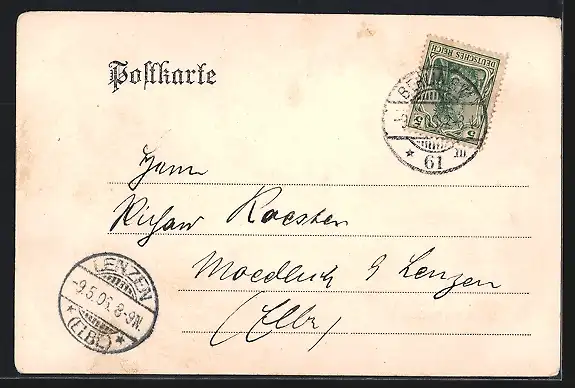 Postkarte
DEUTSCHES REICH
5 5
BERLIN
61
Herrn
Richard Koester
Moedlich b Lenzen
(Elbe)
LENZEN
-9.5.05.8-9N.
* (ELBE) *